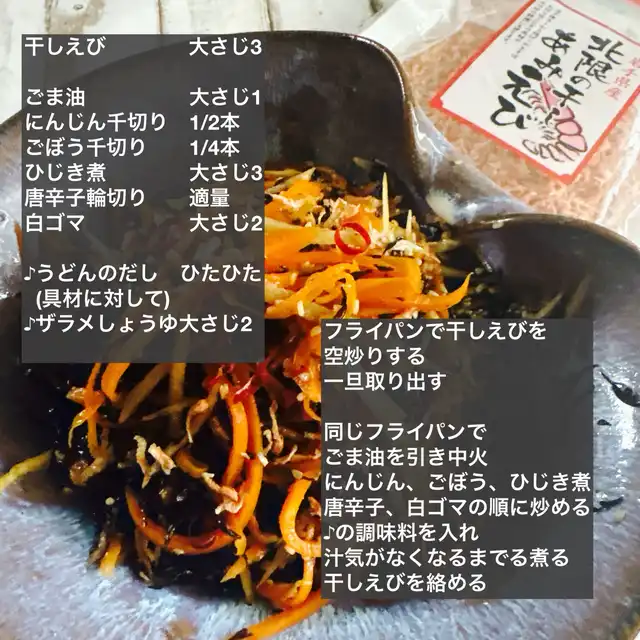 干しえび 大さじ3
ごま油 大さじ1
にんじん千切り 1/2本
ごぼう千切り 1/4本
ひじき煮 大さじ3
唐辛子輪切り 適量
白ゴマ 大さじ2
♪うどんのだし ひたひた
(具材に対して)
♪ザラメしょうゆ大さじ2
フライパンで干しえびを
空炒りする
一旦取り出す
同じフライパンで
ごま油を引き中火
にんじん、ごぼう、ひじき煮
唐辛子、白ゴマの順に炒める
♪の調味料を入れ
汁気がなくなるまでる煮る
干しえびを絡める
県産
北限の
あみえび